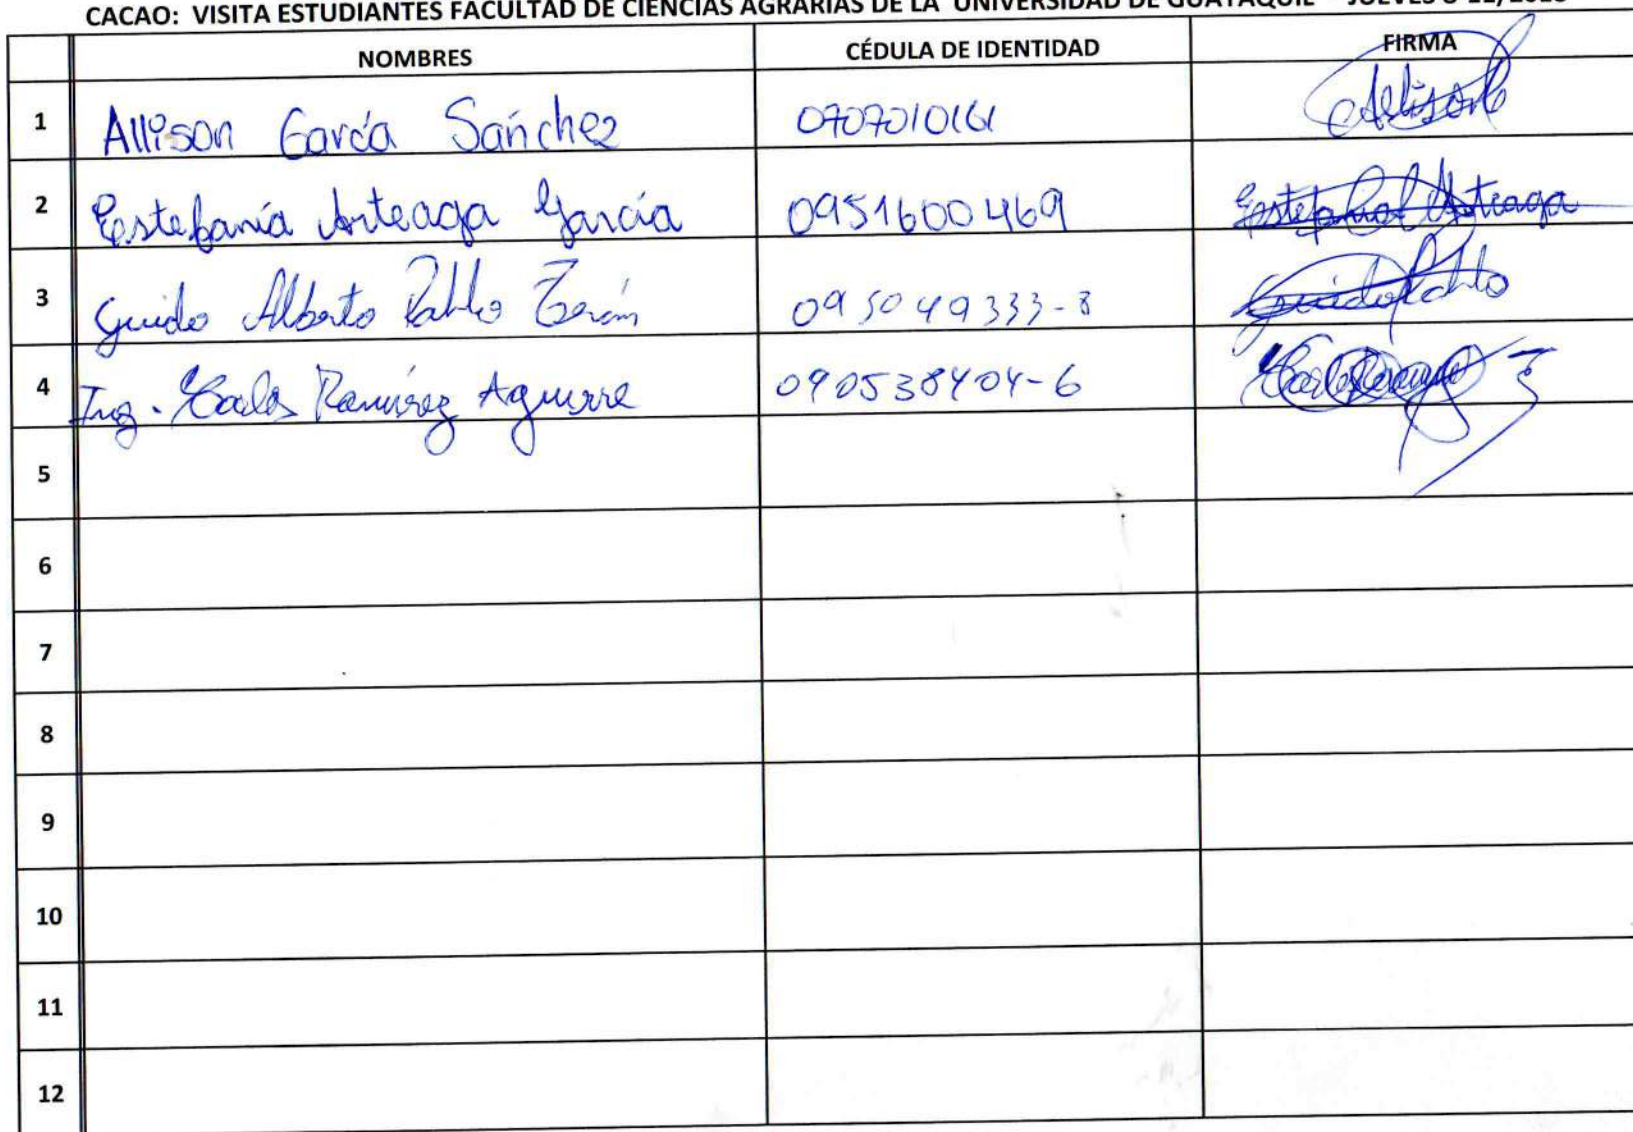 CACAO: VISITA ESTUDIANTES FACULTAD DE CIENCIAS AGRARIAS DE LA UNIVERSIDAD DE GUAYAQUIL JUEVES
NOMBRES CÉDULA DE IDENTIDAD FIRMA
1 Allison García Sánchez 0707010161
2 Estefanía Arteaga García 0951600469 Estefanía Arteaga
3 Guido Alberto Pablo Terán 095049333-8 Guido Pablo
4 Ing. Carlos Ramírez Aguirre 090538404-6
5
6
7
8
9
10
11
12